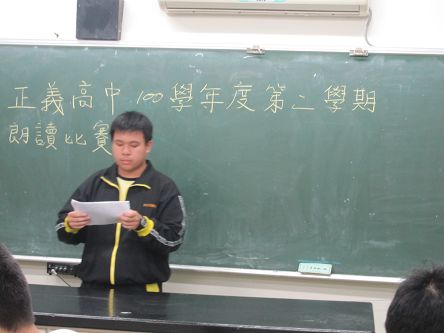 正義高中 100學年度第二學期
朗讀比賽